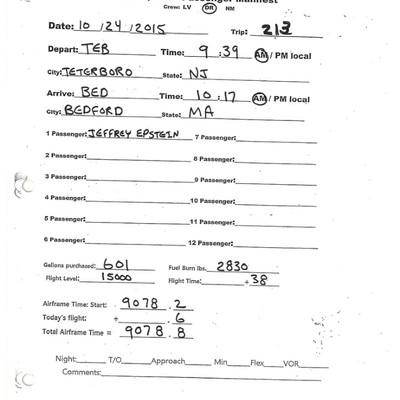 Passenger Manifest
Crew: LV DR NM
Date: 10/24/2015 Trip: 213
Depart: TEB Time: 9:39 AM / PM local
City: TETERBORO State: NJ
Arrive: BED Time: 10:17 AM / PM local
City: BEDFORD State: MA
1 Passenger: JEFFREY EPSTEIN 7 Passenger:
2 Passenger: 8 Passenger:
3 Passenger: 9 Passenger:
4 Passenger: 10 Passenger:
5 Passenger: 11 Passenger:
6 Passenger: 12 Passenger:
Gallons purchased: 601 Fuel Burn lbs. 2830
Flight Level: 15000 Flight Time: + 38
Airframe Time: Start: 9078 . 2
Today's flight: + . 6
Total Airframe Time = 9078 . 8
Night: T/O Approach Min Flex VOR
Comments: